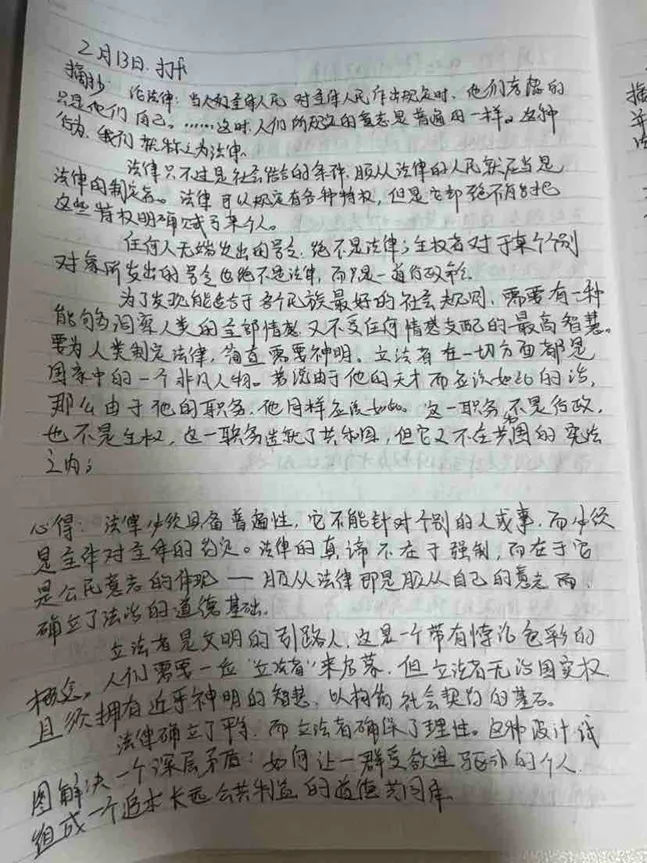 2月13日.打卡
摘抄 论法律：当人们全体人民对全体人民作出规定时，他们考虑的
只是他们自己。……这时人们所规定的意志是普遍的一样。这种
行为，我们就称之为法律。
法律只不过是社会结合的条件.服从法律的人民就应当是
法律的制定者。法律可以规定有各种特权，但是它却绝不能把
这些特权明确赋予某个人。
任何人无端发出的号令，绝不是法律；主权者对于某个个别
对象所发出的号令也绝不是法律，而只是一道行政命令.
为了发现能适合于各个民族最好的社会规则，需要有一种
能够洞察人类的全部情感又不受任何情感支配的最高智慧。
要为人类制定法律，简直需要神明。立法者在一切方面都是
国家中的一个非凡人物。若说由于他的天才而应该如此的话，
那么由于他的职务，他同样应该如此。这一职务不是行政，
也不是主权，这一职务造就了共和国，但它又不在共和国的宪法
之内；
心得：法律必须具备普遍性，它不能针对个别的人或事，而必须
是全体对全体的约定。法律的真谛不在于强制，而在于它
是公民意志的体现——服从法律即是服从自己的意志而
确立了法治的道德基础.
立法者是文明的引路人，这是一个带有悖论色彩的
概念。人们需要一位“立法者”来启蒙，但立法者无治国实权
且须拥有近乎神明的智慧，以构筑社会契约的基石。
法律确立了平等，而立法者确保了理性。这种设计试
图解决一个深层矛盾：如何让一群受欲望驱动的个人
组成一个追求长远公共利益的道德共同体